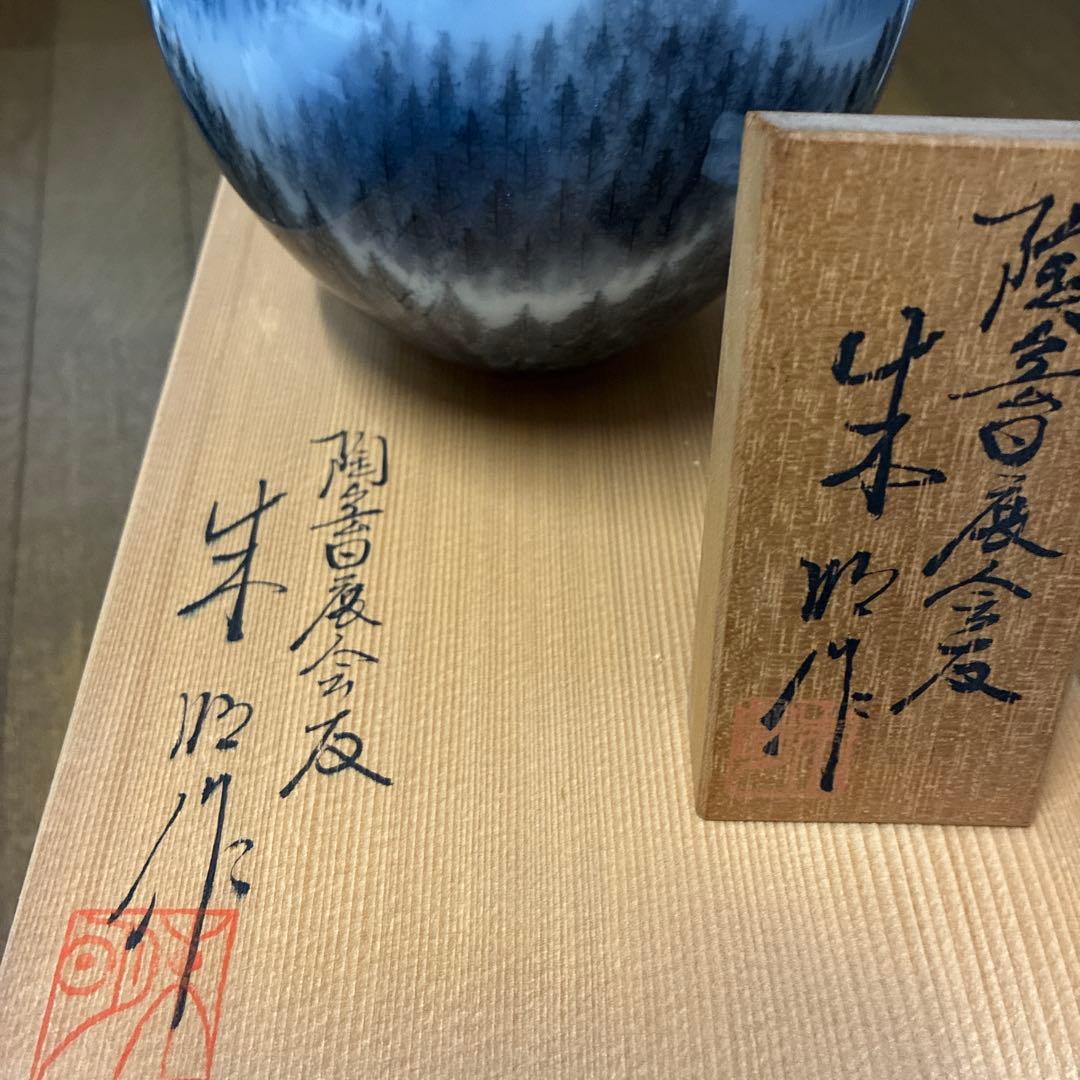 陶芸日展会友
朱明作
陶芸日展会友
朱明作